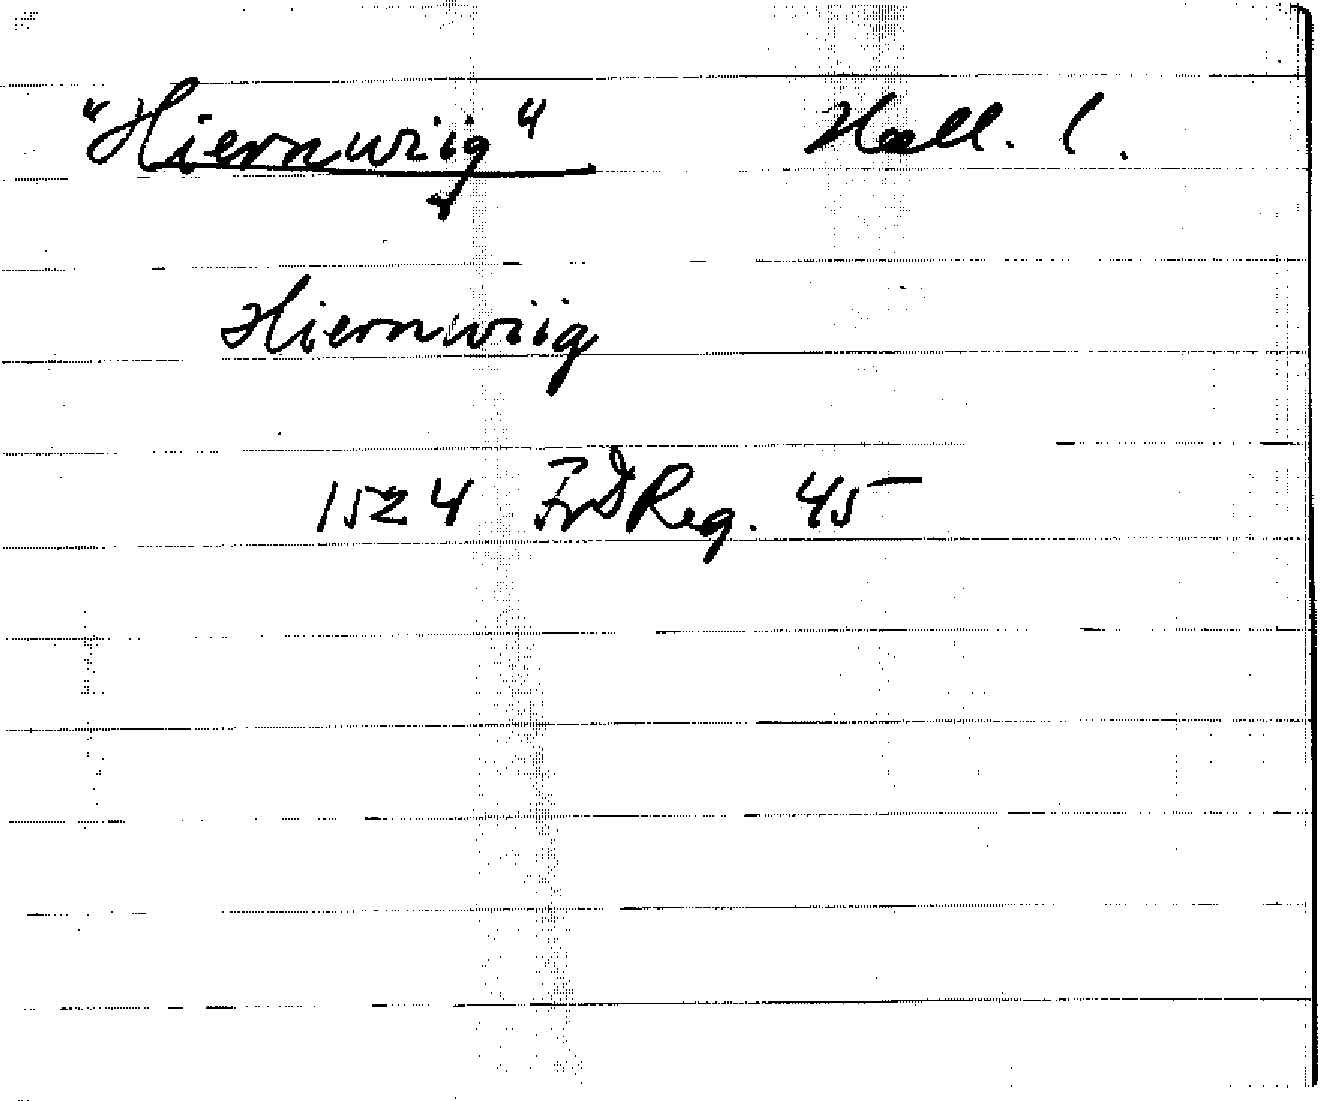 "Hiernwiig" Hall. l.
Hiernwiig
1524 FrDReg. 45